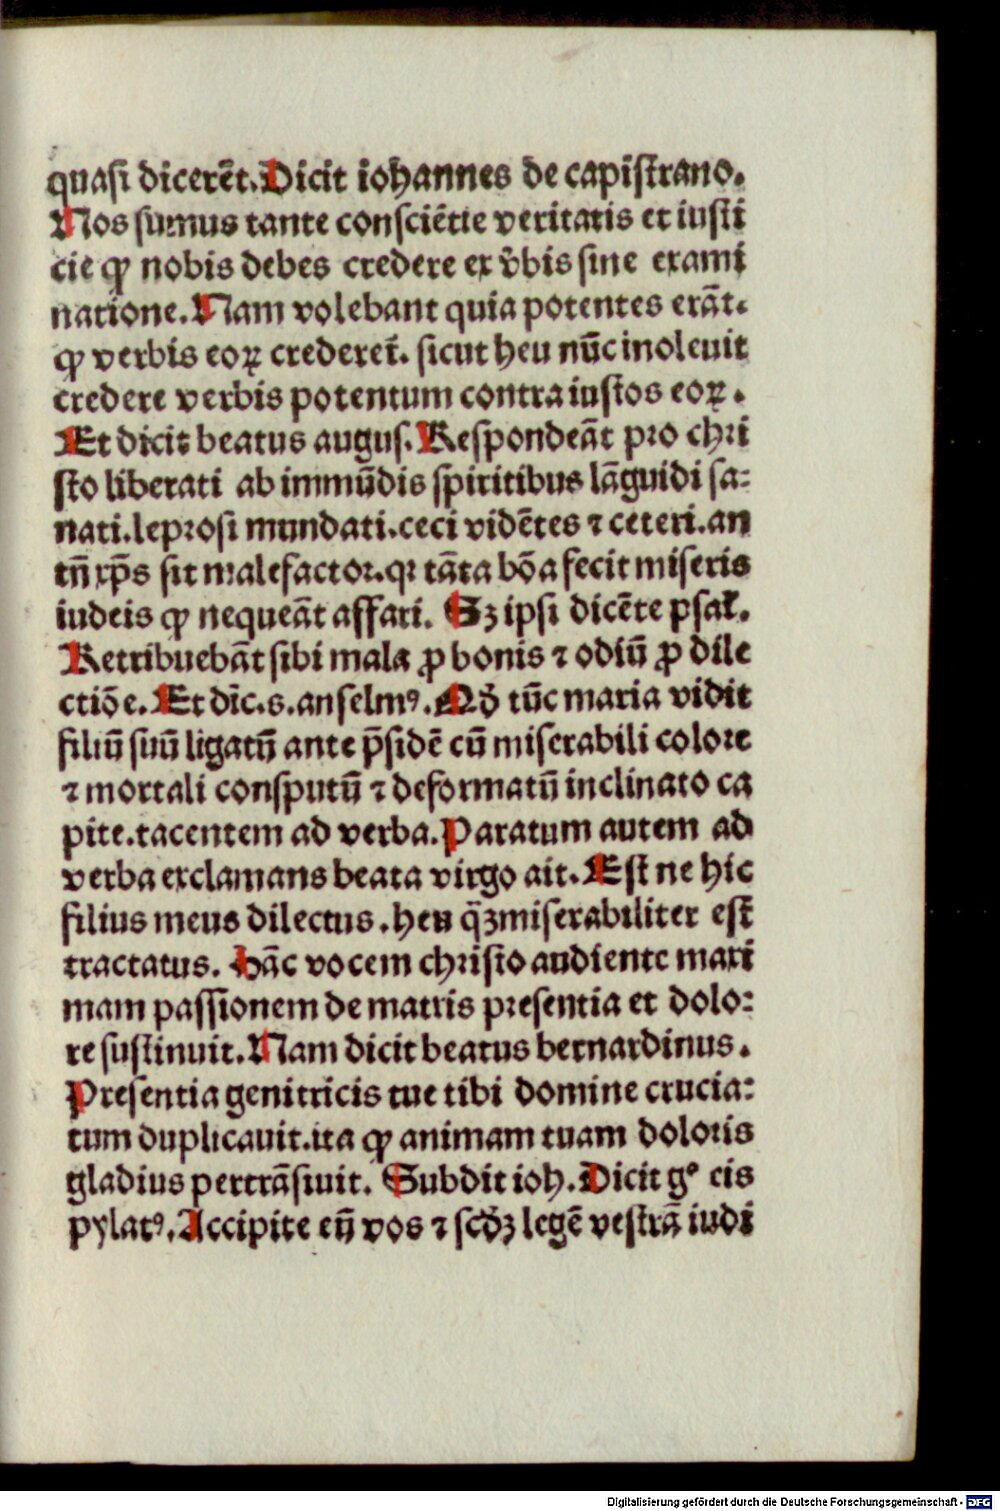 quasi dicerēt. Dicit iohannes de capistrano.
Nos sumus tante consciētie veritatis et iusti
cie ꝙ nobis debes credere ex v̄bis sine exami
natione. Nam volebant quia potentes erāt.
ꝙ verbis eoꝝ crederet̄. sicut heu nūc inoleuit
credere verbis potentum contra iustos eoꝝ.
Et dicit beatus augus. Respondeāt pro chri
sto liberati ab immūdis spiritibus lāguidi sa⸗
nati. leprosi mundati. ceci vidētes ⁊ ceteri. an
tn̄ xp̄s sit malefactor. qr tāta bōa fecit miseris
iudeis ꝙ nequeāt affari. Sꝫ ipsi dicēte psal̄.
Retribuebāt sibi mala ꝓ bonis ⁊ odiū ꝓ dile
ctiōe. Et dic̄. s. anselmꝰ. Qd̄ tūc maria vidit
filiū suū ligatū ante p̄sidē cū miserabili colore
⁊ mortali consputū ⁊ deformatū inclinato ca
pite. tacentem ad verba. Paratum autem ad
verba exclamans beata virgo ait. Est ne hic
filius meus dilectus. heu q̄ꝫ miserabiliter est
tractatus. Hāc vocem christo audiente maxi
mam passionem de matris presentia et dolo⸗
re sustinuit. Nam dicit beatus bernardinus.
Presentia genitricis tue tibi domine crucia⸗
tum duplicauit. ita ꝙ animam tuam doloris
gladius pertrāsiuit. Subdit ioh. Dicit gͦ eis
pylatꝰ. Accipite eū vos ⁊ scd̄ꝫ legē vestrā iudi
Digitalisierung gefördert durch die Deutsche Forschungsgemeinschaft - DFG